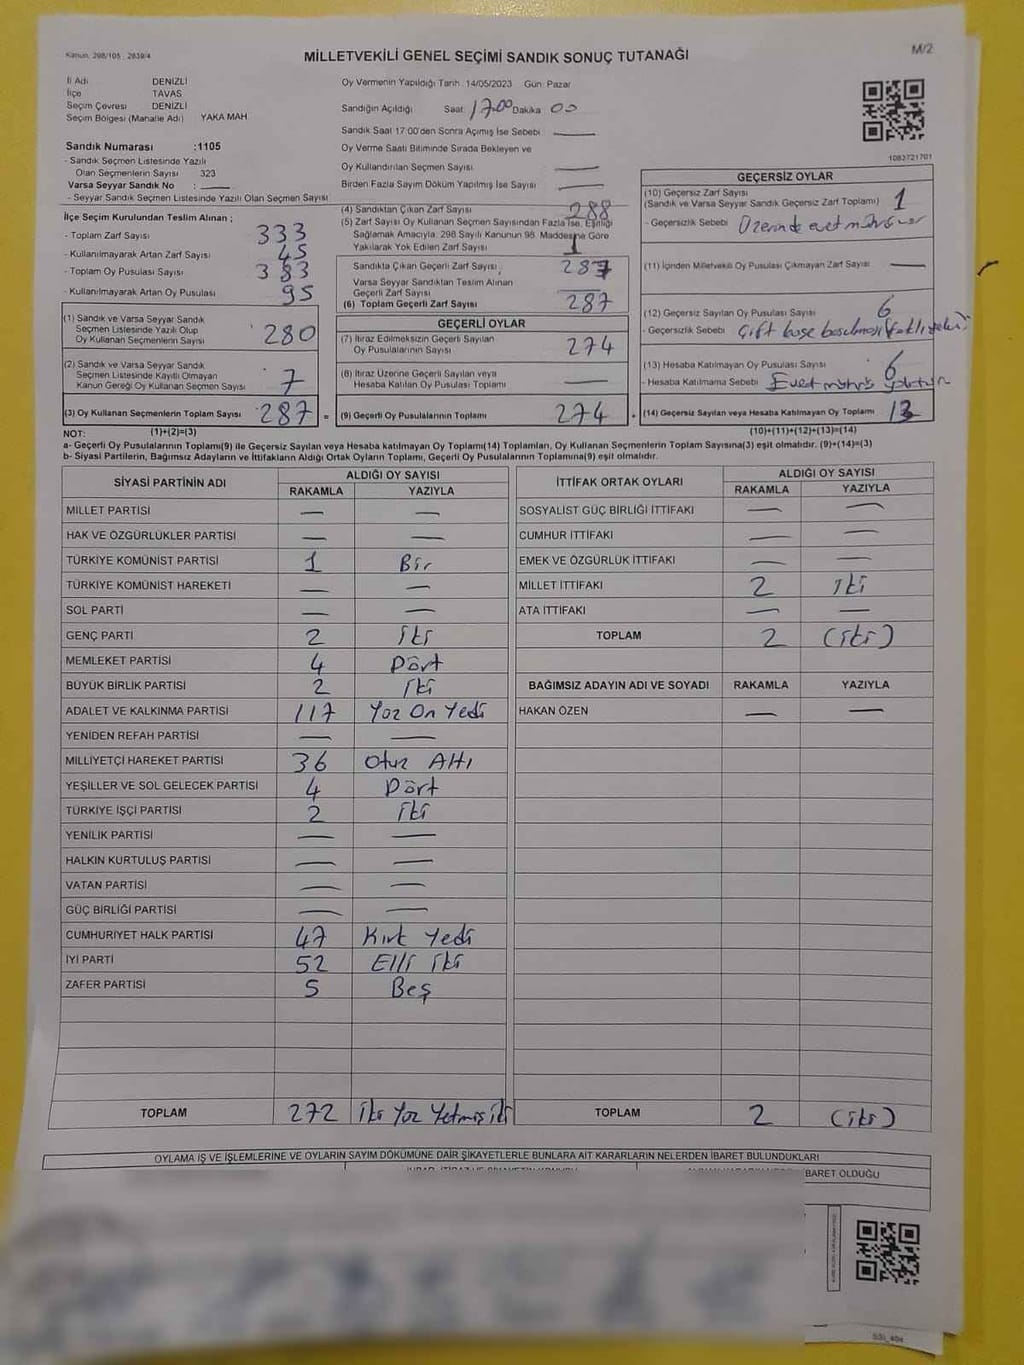 Kanun. 298/105 , 2839/4
MİLLETVEKİLİ GENEL SEÇİMİ SANDIK SONUÇ TUTANAĞI
M/2
İl Adı DENİZLİ
İlçe TAVAS
Seçim Çevresi DENİZLİ
Seçim Bölgesi (Mahalle Adı) YAKA MAH
Oy Vermenin Yapıldığı Tarih 14/05/2023 Gün: Pazar
Sandığın Açıldığı Saat 17:00 Dakika 00
Sandık Saat 17:00'den Sonra Açımış İse Sebebi —
Oy Verme Saati Bitiminde Sırada Bekleyen ve
Oy Kullandırılan Seçmen Sayısı —
Birden Fazla Sayım Döküm Yapılmış İse Sayısı —
1083721701
Sandık Numarası :1105
- Sandık Seçmen Listesinde Yazılı
Olan Seçmenlerin Sayısı 323
Varsa Seyyar Sandık No : —
- Seyyar Sandık Seçmen Listesinde Yazılı Olan Seçmen Sayısı
İlçe Seçim Kurulundan Teslim Alınan ;
- Toplam Zarf Sayısı 333
- Kullanılmayarak Artan Zarf Sayısı 45
- Toplam Oy Pusulası Sayısı 383
- Kullanılmayarak Artan Oy Pusulası 95
(1) Sandık ve Varsa Seyyar Sandık
Seçmen Listesinde Yazılı Olup
Oy Kullanan Seçmenlerin Sayısı 280
(2) Sandık ve Varsa Seyyar Sandık
Seçmen Listesinde Kayıtlı Olmayan
Kanun Gereği Oy Kullanan Seçmen Sayısı 7
(3) Oy Kullanan Seçmenlerin Toplam Sayısı 287 =
(4) Sandıktan Çıkan Zarf Sayısı 288
(5) Zarf Sayısı Oy Kullanan Seçmen Sayısından Fazla İse, Eşitliği
Sağlamak Amacıyla, 298 Sayılı Kanunun 98. Maddesine Göre
Yakılarak Yok Edilen Zarf Sayısı 1
Sandıkta Çıkan Geçerli Zarf Sayısı, 287
Varsa Seyyar Sandıktan Teslim Alınan
Geçerli Zarf Sayısı —
(6) Toplam Geçerli Zarf Sayısı 287
GEÇERLİ OYLAR
(7) İtiraz Edilmeksizin Geçerli Sayılan
Oy Pusulalarının Sayısı 274
(8) İtiraz Üzerine Geçerli Sayılan veya
Hesaba Katılan Oy Pusulası Toplamı —
(9) Geçerli Oy Pusulalarının Toplamı 274
GEÇERSİZ OYLAR
(10) Geçersiz Zarf Sayısı
(Sandık ve Varsa Seyyar Sandık Geçersiz Zarf Toplamı) 1
- Geçersizlik Sebebi Üzerinde evet mührü
(11) İçinden Milletvekili Oy Pusulası Çıkmayan Zarf Sayısı —
(12) Geçersiz Sayılan Oy Pusulası Sayısı 6
- Geçersizlik Sebebi Çift kaşe basılması
(13) Hesaba Katılmayan Oy Pusulası Sayısı 6
- Hesaba Katılmama Sebebi Evet mührü yoktur
(14) Geçersiz Sayılan veya Hesaba Katılmayan Oy Toplamı 13
NOT: (1)+(2)=(3) (10)+(11)+(12)+(13)=(14)
a- Geçerli Oy Pusulalarının Toplamı(9) ile Geçersiz Sayılan veya Hesaba katılmayan Oy Toplamı(14) Toplamları, Oy Kullanan Seçmenlerin Toplam Sayısına(3) eşit olmalıdır. (9)+(14)=(3)
b- Siyasi Partilerin, Bağımsız Adayların ve İttifakların Aldığı Ortak Oyların Toplamı, Geçerli Oy Pusulalarının Toplamına(9) eşit olmalıdır.
SİYASİ PARTİNİN ADI ALDIĞI OY SAYISI
RAKAMLA YAZIYLA
MİLLET PARTİSİ — —
HAK VE ÖZGÜRLÜKLER PARTİSİ — —
TÜRKİYE KOMÜNİST PARTİSİ 1 Bir
TÜRKİYE KOMÜNİST HAREKETİ — —
SOL PARTİ — —
GENÇ PARTİ 2 iki
MEMLEKET PARTİSİ 4 Dört
BÜYÜK BİRLİK PARTİSİ 2 iki
ADALET VE KALKINMA PARTİSİ 117 Yüz On Yedi
YENİDEN REFAH PARTİSİ — —
MİLLİYETÇİ HAREKET PARTİSİ 36 Otuz Altı
YEŞİLLER VE SOL GELECEK PARTİSİ 4 Dört
TÜRKİYE İŞÇİ PARTİSİ 2 iki
YENİLİK PARTİSİ — —
HALKIN KURTULUŞ PARTİSİ — —
VATAN PARTİSİ — —
GÜÇ BİRLİĞİ PARTİSİ — —
CUMHURİYET HALK PARTİSİ 47 Kırk Yedi
İYİ PARTİ 52 Elli iki
ZAFER PARTİSİ 5 Beş
TOPLAM 272 iki Yüz Yetmiş iki
İTTİFAK ORTAK OYLARI ALDIĞI OY SAYISI
RAKAMLA YAZIYLA
SOSYALİST GÜÇ BİRLİĞİ İTTİFAKI — —
CUMHUR İTTİFAKI — —
EMEK VE ÖZGÜRLÜK İTTİFAKI — —
MİLLET İTTİFAKI 2 iki
ATA İTTİFAKI — —
TOPLAM 2 (iki)
BAĞIMSIZ ADAYIN ADI VE SOYADI RAKAMLA YAZIYLA
HAKAN ÖZEN — —
TOPLAM 2 (iki)
OYLAMA İŞ VE İŞLEMLERİNE VE OYLARIN SAYIM DÖKÜMÜNE DAİR ŞİKAYETLERLE BUNLARA AİT KARARLARIN NELERDEN İBARET BULUNDUKLARI
BARET OLDUĞU